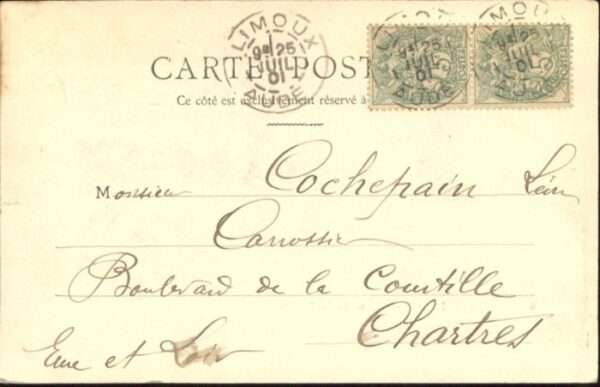 CARTE POST
Ce côté est exclusivement réservé à
LIMOUX
9H 25
1
JUIL
01
AUDE
LIMOUX
9H 25
1
JUIL
01
AUDE
LIMOUX
9H 25
1
JUIL
01
5
5
Monsieur Cochepain Léon
Carrossier
Boulevard de la Courtille
Chartres
Eure et Loir